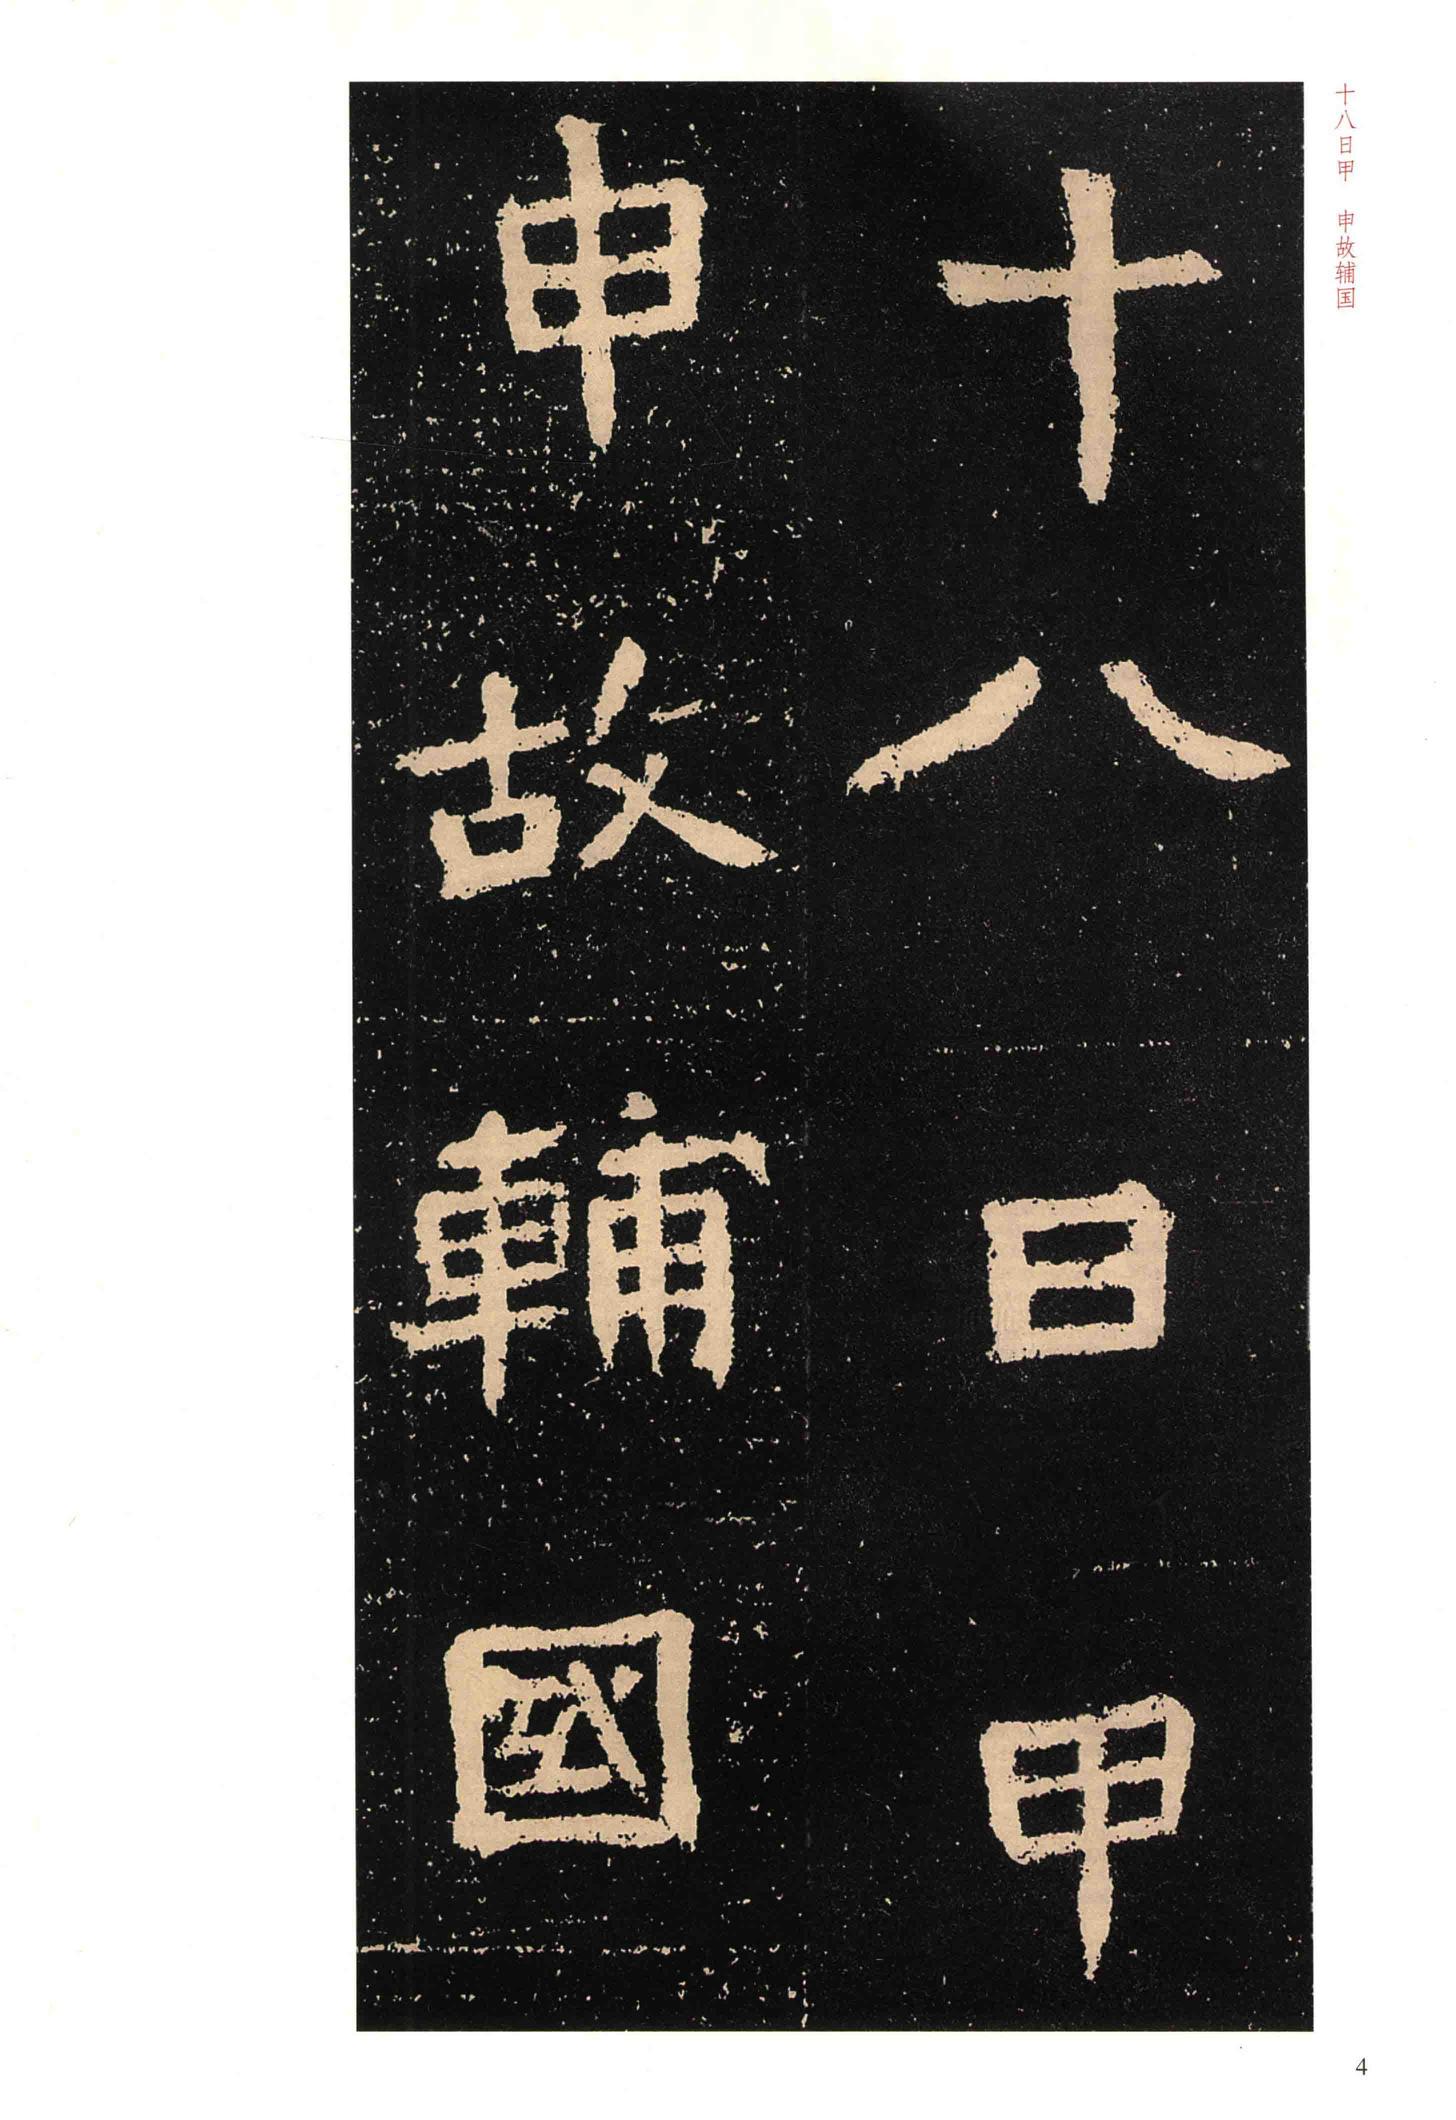 十八日甲　申故辅国
十八日甲
申故輔國
4